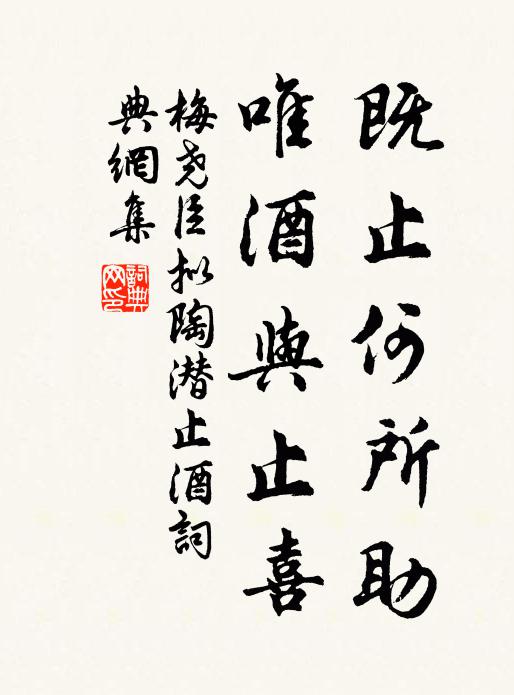 既止何所助
唯酒與止喜
梅尧臣拟陶潜止酒詞
典網集
詞典
网印